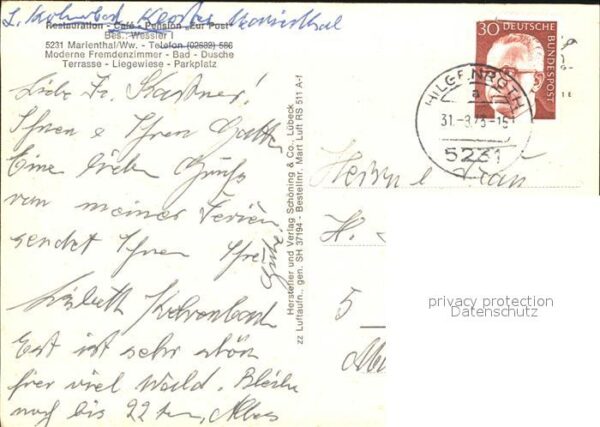 Kloster Marienthal
Restauration - Café - Pension „Zur Post"
Bes.: Wessler I
5231 Marienthal/Ww. - Telefon (02682) 586
Moderne Fremdenzimmer - Bad - Dusche
Terrasse - Liegewiese - Parkplatz
Liebe Fr. Kastner!
Ihnen u Ihren Gatten
Eine lieben Gruß
von meinen Ferien
sendet Ihnen Ihre
Lisbeth
Est ist sehr schön
hier viel Wald. Bleibe
noch bis 22 ten, Alles
Gute
Hersteller und Verlag Schöning & Co., Lübeck
zz Luftaufn., gen. SH 37194 - Bestellnr. Mart Luft RS 511 A-f
30 DEUTSCHE
BUNDESPOST
HILGENROTH
a
31.-8.73-15
5231
Herrn u Frau
H.
5
privacy protection
Datenschutz